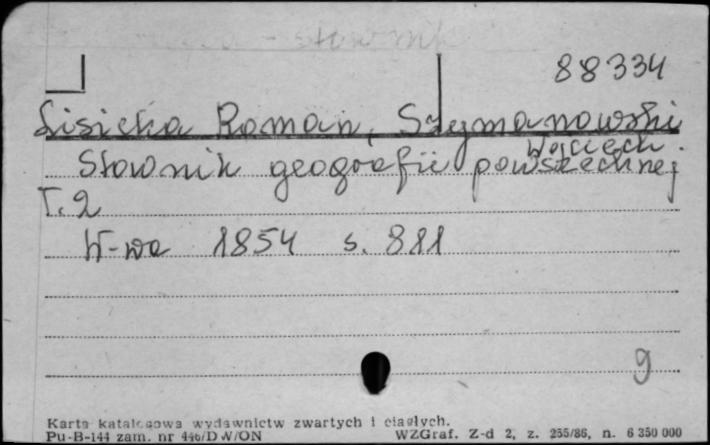 słownik
88334
Lisicka Roman, Szymanowski
Wojciech.
Słownik geografii powszechnej
T. 2
W-wa 1854 s. 881
g
Karta katalogowa wydawnictw zwartych i ciągłych.
Pu-B-144 zam. nr 446/DW/ON WZGraf. Z-d 2, z. 255/86, n. 6 350 000